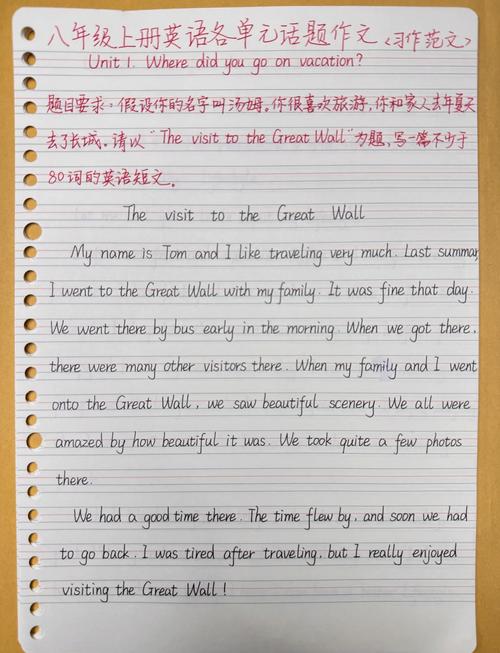 八年级上册英语各单元话题作文（习作范文）
Unit 1. Where did you go on vacation?
题目要求：假设你的名字叫汤姆。你很喜欢旅游，你和家人去年夏天
去了长城。请以“The visit to the Great Wall”为题，写一篇不少于
80词的英语短文。
The visit to the Great Wall
My name is Tom and I like traveling very much. Last summar
I went to the Great Wall with my family. It was fine that day.
We went there by bus early in the morning. When we got there,
there were many other visitors there. When my family and I went
onto the Great Wall, we saw beautiful scenery. We all were
amazed by how beautiful it was. We took quite a few photos
there.
We had a good time there. The time flew by, and soon we had
to go back. I was tired after traveling, but I really enjoyed
visiting the Great Wall!